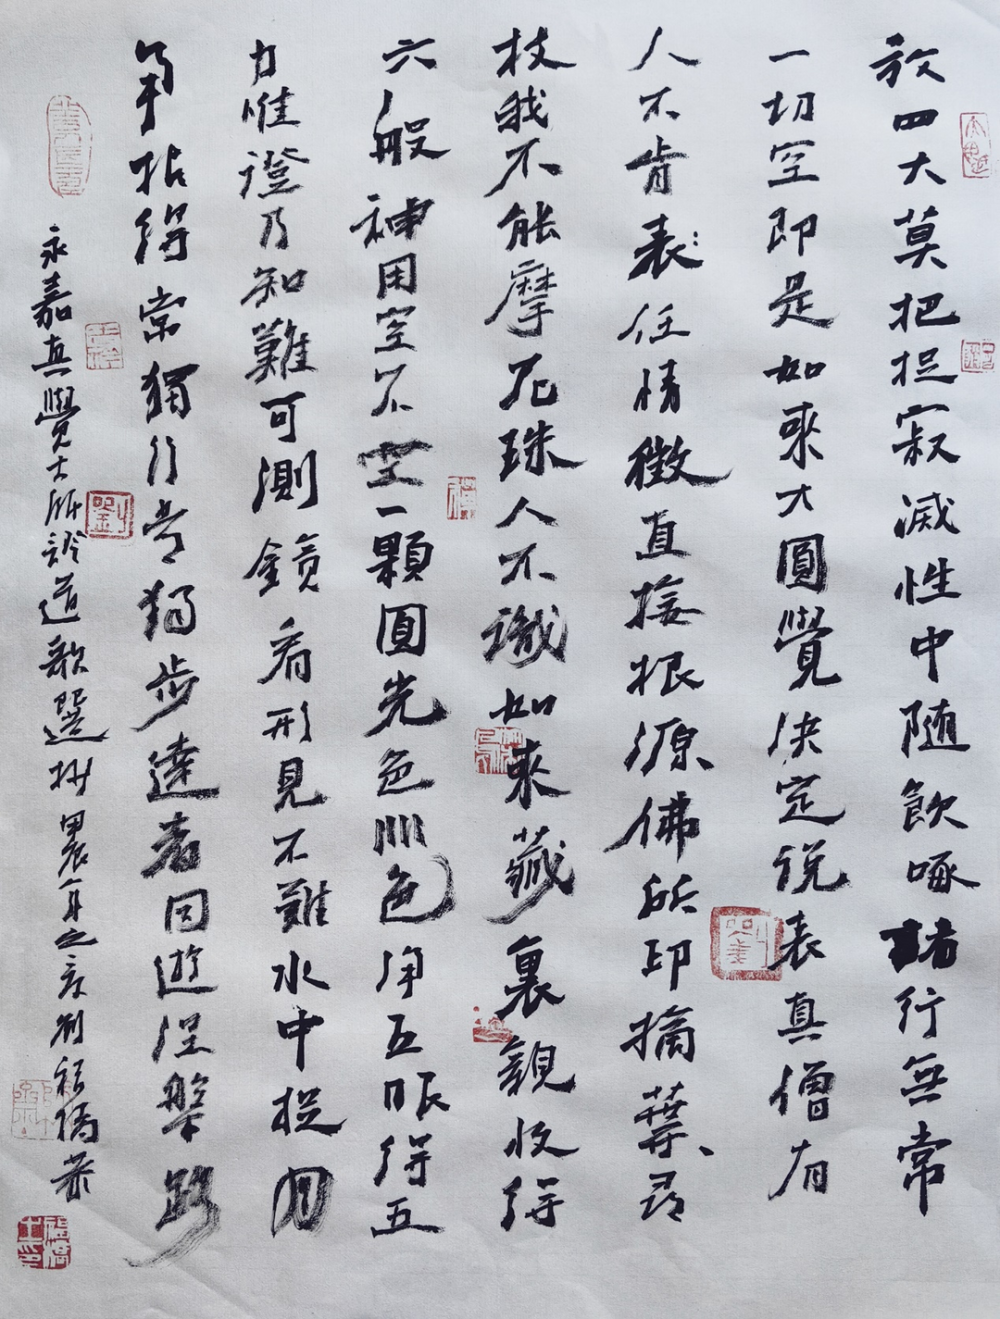 放四大莫把捉寂滅性中随飲啄諸行無常
一切空即是如來大圓覺決定説表真僧有
人不肯表任情徵直接根源佛所印摘葉尋
枝我不能摩尼珠人不識如來藏裏親收得
六般神用空不空一顆圓光色非色净五眼得五
力惟證乃知難可測鏡看形見不難水中捉月
争拈得常獨行常獨步達者同遊涅槃路
永嘉真覺大師證道歌選抄甲辰年之
劉